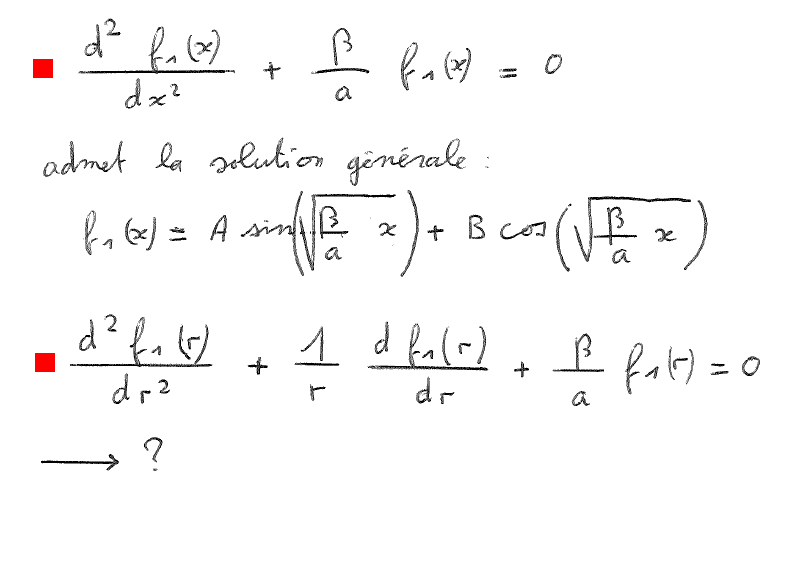 d² f₁(x) / dx² + β/a f₁(x) = 0
admet la solution générale :
f₁(x) = A sin(√(β/a x)) + B cos(√(β/a x))
d² f₁(r) / dr² + 1/r d f₁(r) / dr + β/a f₁(r) = 0
⟶ ?